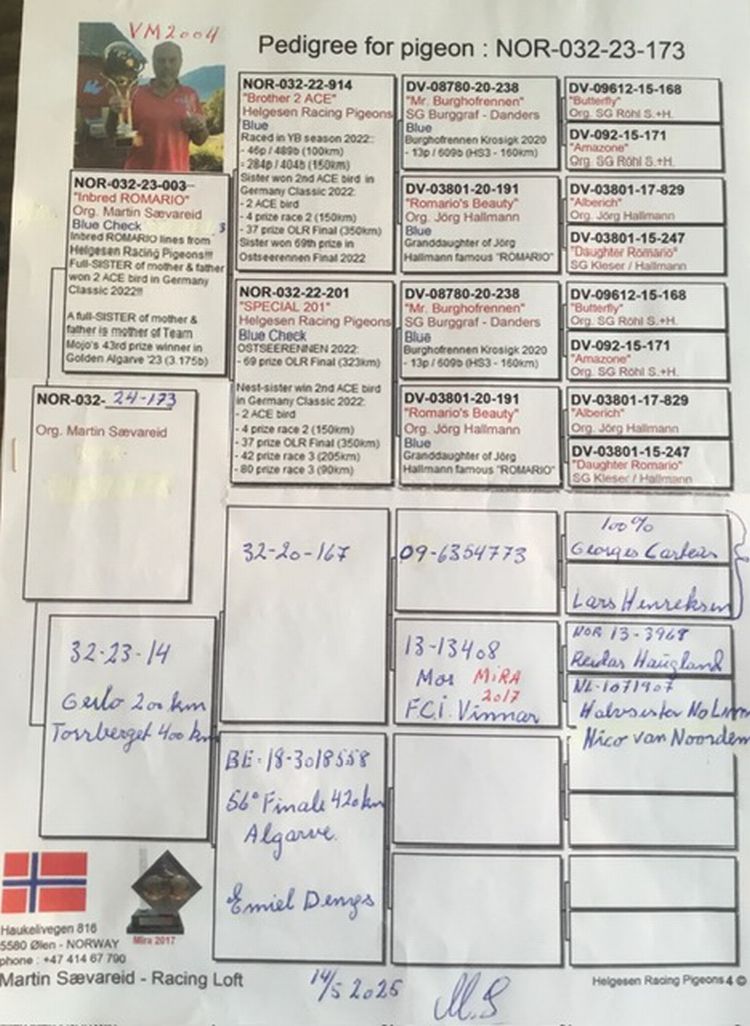 VM2004
Pedigree for pigeon : NOR-032-23-173
NOR-032-23-003
"Inbred ROMARIO"
Org. Martin Sævareid
Blue Check
Inbred ROMARIO lines from
Helgesen Racing Pigeons!!!
Full-SISTER of mother & father
won 2 ACE bird in Germany
Classic 2022!!!
A full-SISTER of mother &
father is mother of Team
Mojo's 43rd prize winner in
Golden Algarve '23 (3.175b)
NOR-032-22-914
"Brother 2 ACE"
Helgesen Racing Pigeons
Blue
Raced in YB season 2022:
- 46p / 489b (100km)
- 284p / 404b (150km)
Sister won 2nd ACE bird in
Germany Classic 2022:
- 2 ACE bird
- 4 prize race 2 (150km)
- 37 prize OLR Final (350km)
Sister won 69th prize in
Ostseerennen Final 2022
DV-08780-20-238
"Mr. Burghofrennen"
SG Burggraf - Danders
Blue
Burghofrennen Krosigk 2020
- 13p / 609b (HS3 - 160km)
DV-09612-15-168
"Butterfly"
Org. SG Röhl S.+H.
DV-092-15-171
"Amazone"
Org. SG Röhl S.+H.
DV-03801-20-191
"Romario's Beauty"
Org. Jörg Hallmann
Blue
Granddaughter of Jörg
Hallmann famous "ROMARIO"
DV-03801-17-829
"Alberich"
Org. Jörg Hallmann
DV-03801-15-247
"Daughter Romario"
SG Kleser / Hallmann
NOR-032-22-201
"SPECIAL 201"
Helgesen Racing Pigeons
Blue Check
OSTSEERENNEN 2022:
- 69 prize OLR Final (323km)
Nest-sister win 2nd ACE bird
in Germany Classic 2022:
- 2 ACE bird
- 4 prize race 2 (150km)
- 37 prize OLR Final (350km)
- 42 prize race 3 (205km)
- 80 prize race 3 (90km)
DV-08780-20-238
"Mr. Burghofrennen"
SG Burggraf - Danders
Blue
Burghofrennen Krosigk 2020
- 13p / 609b (HS3 - 160km)
DV-09612-15-168
"Butterfly"
Org. SG Röhl S.+H.
DV-092-15-171
"Amazone"
Org. SG Röhl S.+H.
DV-03801-20-191
"Romario's Beauty"
Org. Jörg Hallmann
Blue
Granddaughter of Jörg
Hallmann famous "ROMARIO"
DV-03801-17-829
"Alberich"
Org. Jörg Hallmann
DV-03801-15-247
"Daughter Romario"
SG Kleser / Hallmann
NOR-032- 24-173
Org. Martin Sævareid
32-23-14
Geilo 200 km
Torrberget 400 km
32-20-167
09-6354773
100%
Georges Carteus
Lars Henreksen
13-13408
Mor MiRA
2017
F.C.I. Vinnar
NOR 13-3968
Reidar Haugland
NL-1071907
Halvsister No Limit
Nico van Noordem
BE-18-3018558
56° Finale 420km
Algarve.
Emiel Denys
Mira 2017
Haukelivegen 816
5580 Ølen - NORWAY
phone : +47 414 67 790
Martin Sævareid - Racing Loft
14/5 2025
M.S
Helgesen Racing Pigeons 4 ©